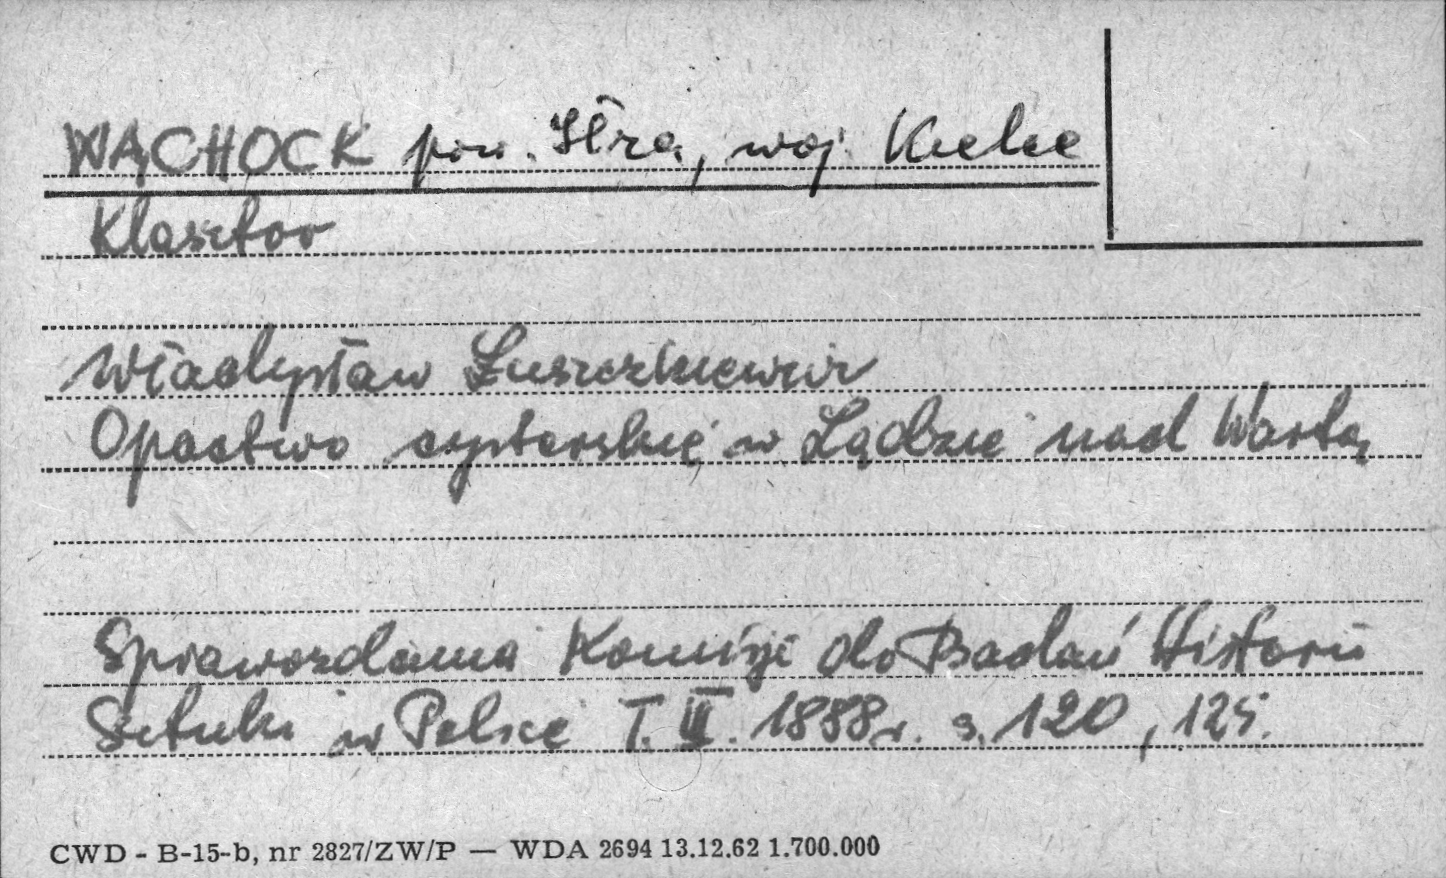 WĄCHOCK pow. Iłża, woj. Kielce
Klasztor
Władysław Łuszczkiewicz
Opactwo cysterskie w Lądzie nad Wartą
Sprawozdania Komisji do Badań Historii
Sztuki w Polsce T. III. 1888r. s. 120, 125.
CWD - B-15-b, nr 2827/ZW/P — WDA 2694 13.12.62 1.700.000